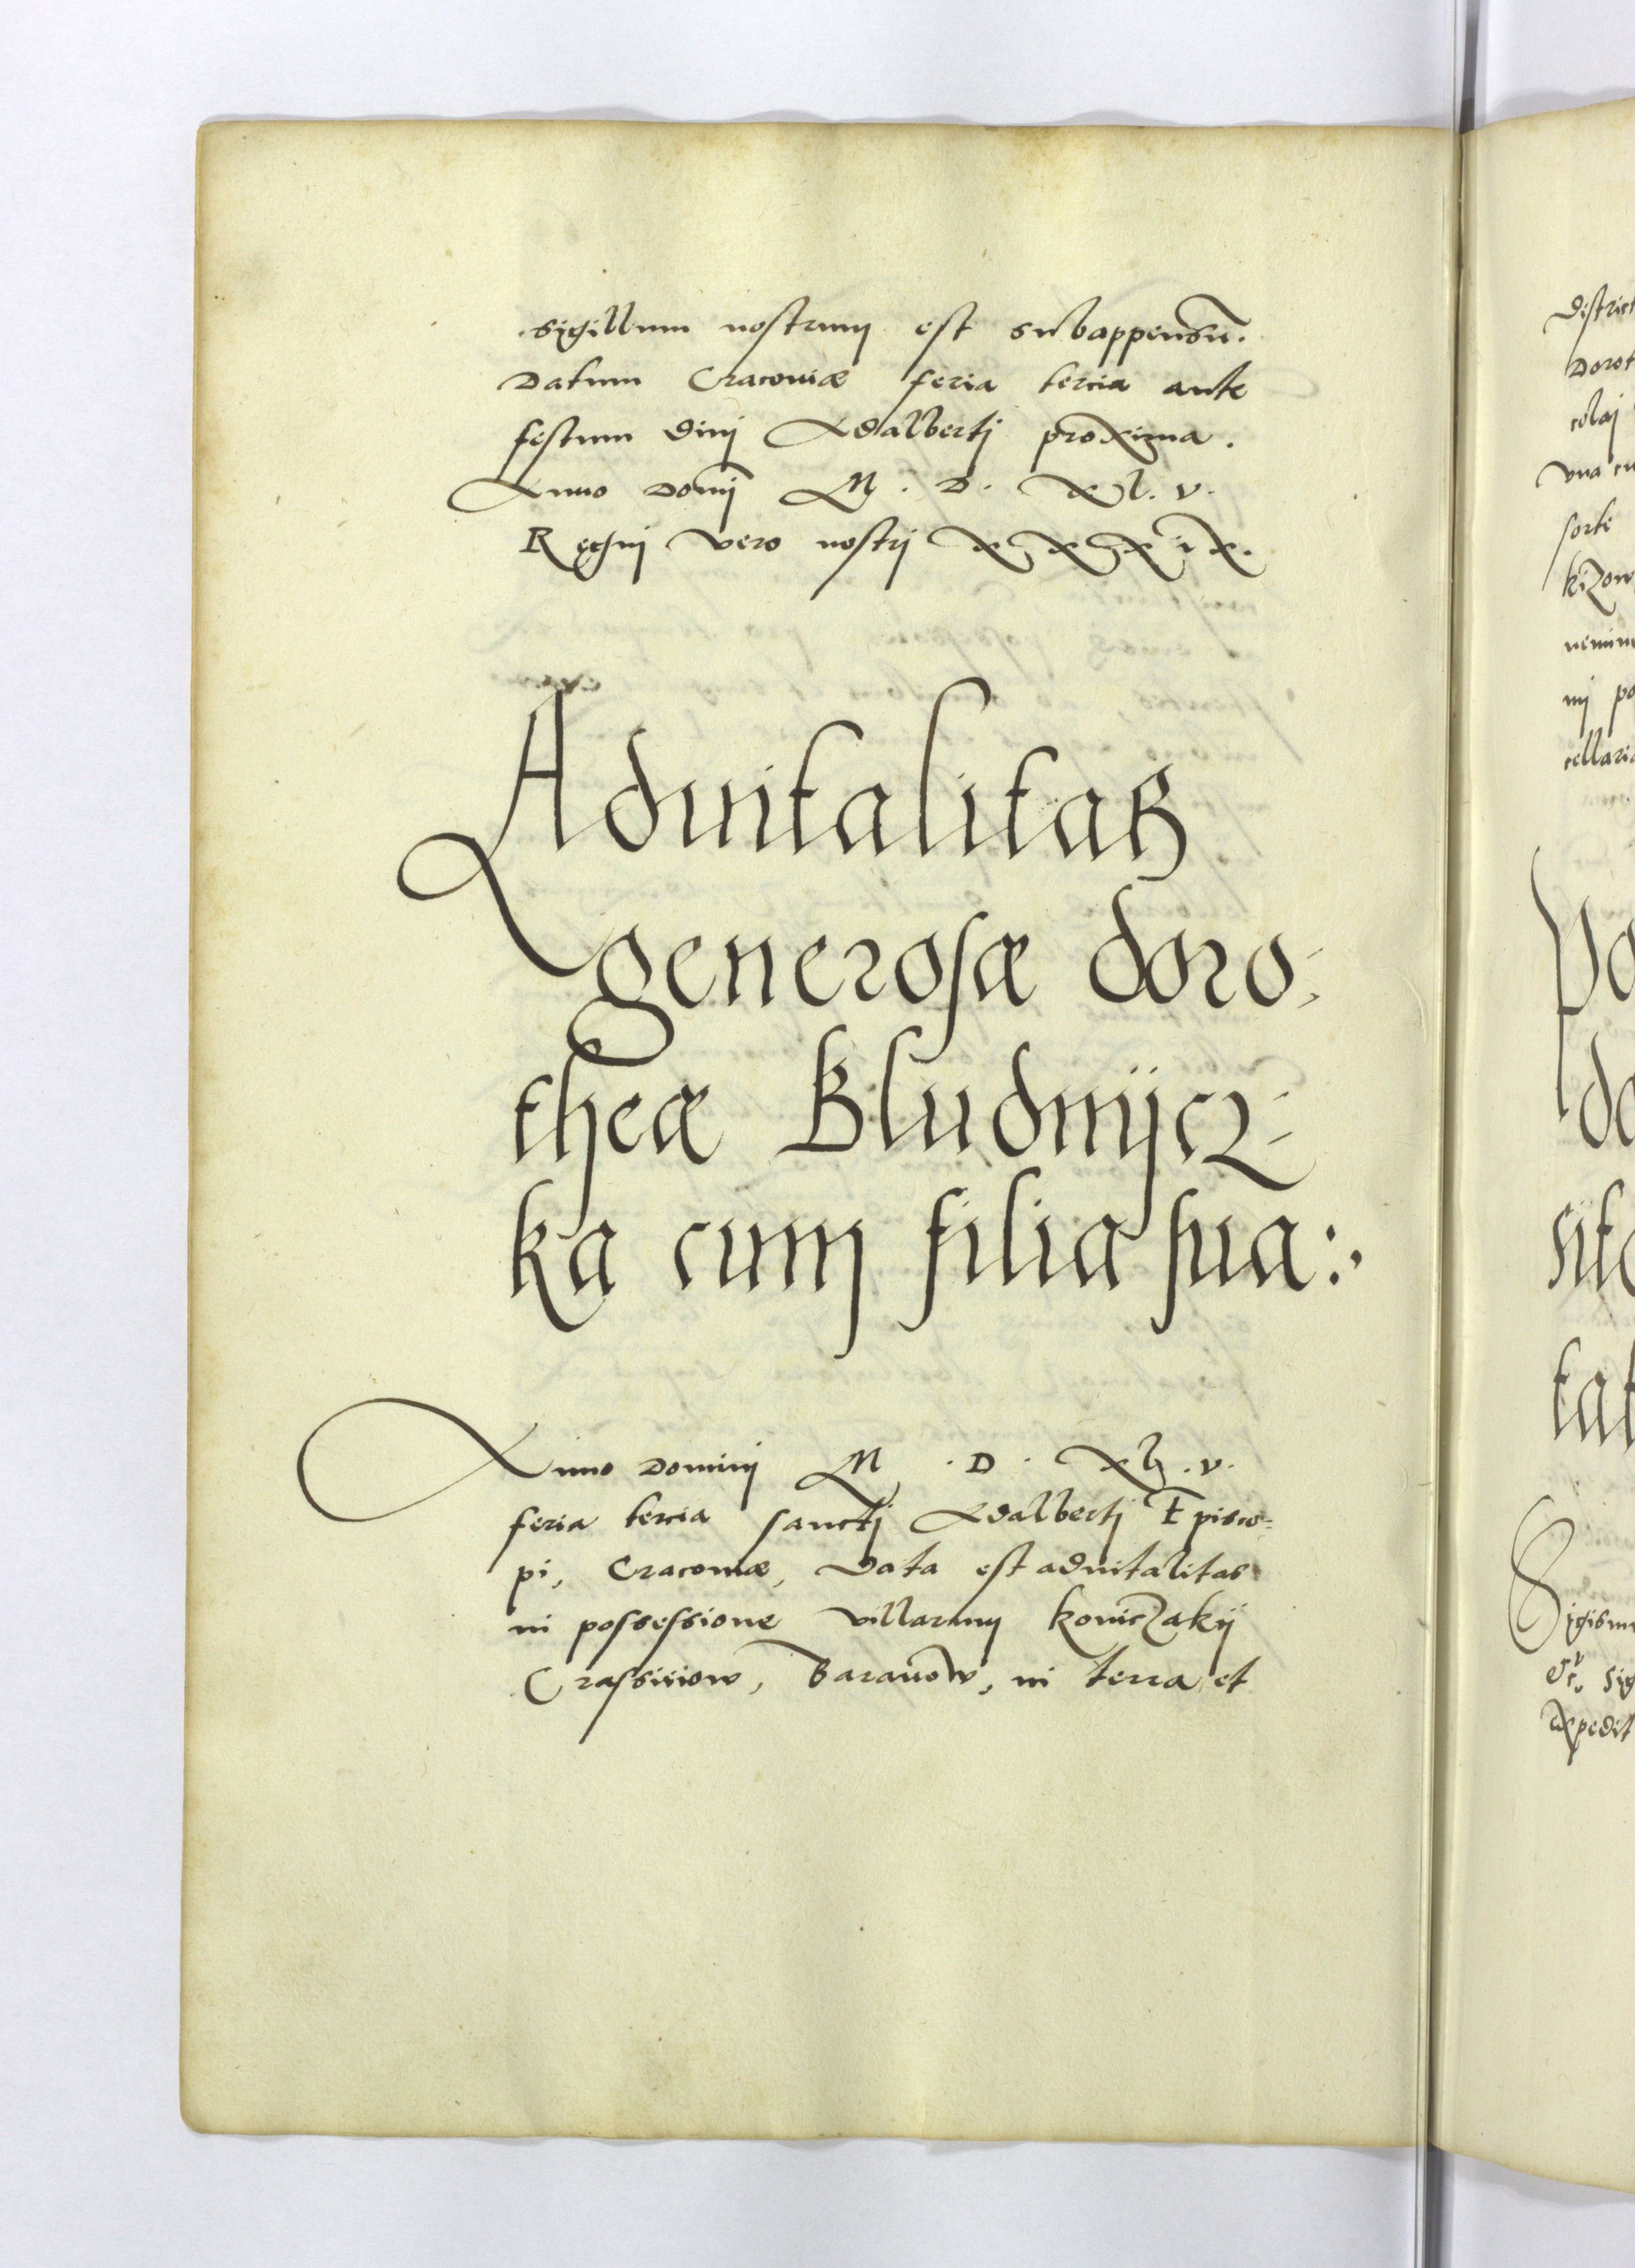 sigillum nostrum est subappensū.
Datum Cracoviæ feria tercia ante
festum divj Adalbertj proxima.
Anno Domj M. D. xl. v.
Regnj vero nostrj xxxix.
Advitalitas
generosæ doro:
theæ Bludnijcz:
ka cum filia sua:.
Anno Dominj M. D. xl. v.
feria tercia sanctj Adalbertj Episco=
pi, Cracoviæ, Data est advitalitas
in possessione villarum koniczakij
Crassiiow, Baranow, in terra et
district
Dorot
colaj
vna cu
sorte
kizow
nemine
nj po
cellaria
sit
tat
Sigism
Sig
expedit